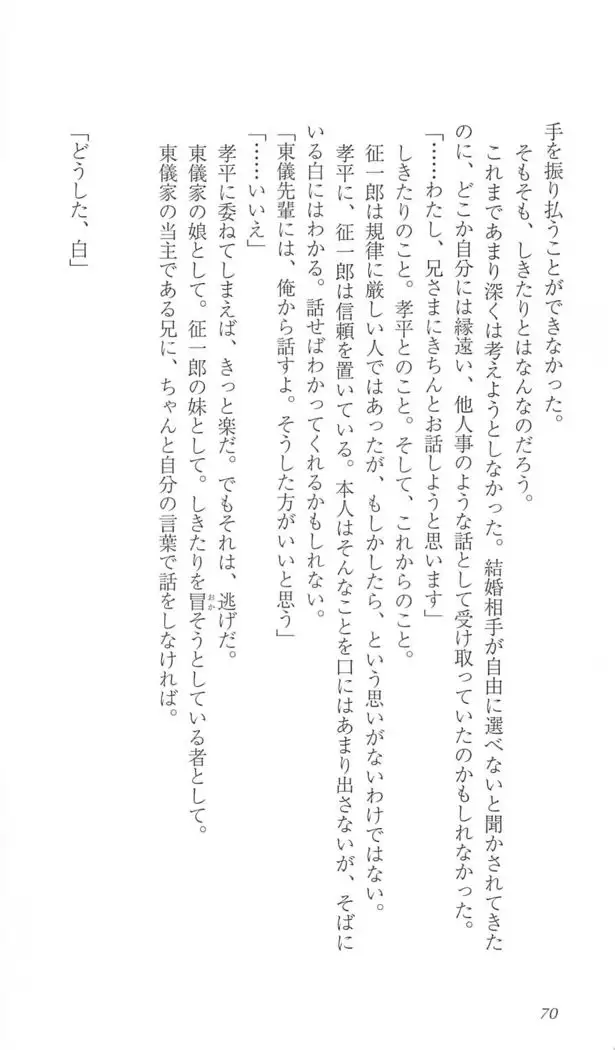 手を振り払うことができなかった。
そもそも、しきたりとはなんなのだろう。
これまであまり深くは考えようとしなかった。結婚相手が自由に選べないと聞かされてきた
のに、どこか自分には縁遠い、他人事のような話として受け取っていたのかもしれなかった。
「……わたし、兄さまにきちんとお話しようと思います」
しきたりのこと。孝平とのこと。そして、これからのこと。
征一郎は規律に厳しい人ではあったが、もしかしたら、という思いがないわけではない。
孝平に、征一郎は信頼を置いている。本人はそんなことを口にはあまり出さないが、そばに
いる白にはわかる。話せばわかってくれるかもしれない。
「東儀先輩には、俺から話すよ。そうした方がいいと思う」
「……いいえ」
孝平に委ねてしまえば、きっと楽だ。でもそれは、逃げだ。
東儀家の娘として。征一郎の妹として。しきたりを冒そうとしている者として。
おか
東儀家の当主である兄に、ちゃんと自分の言葉で話をしなければ。
「どうした、白」
70